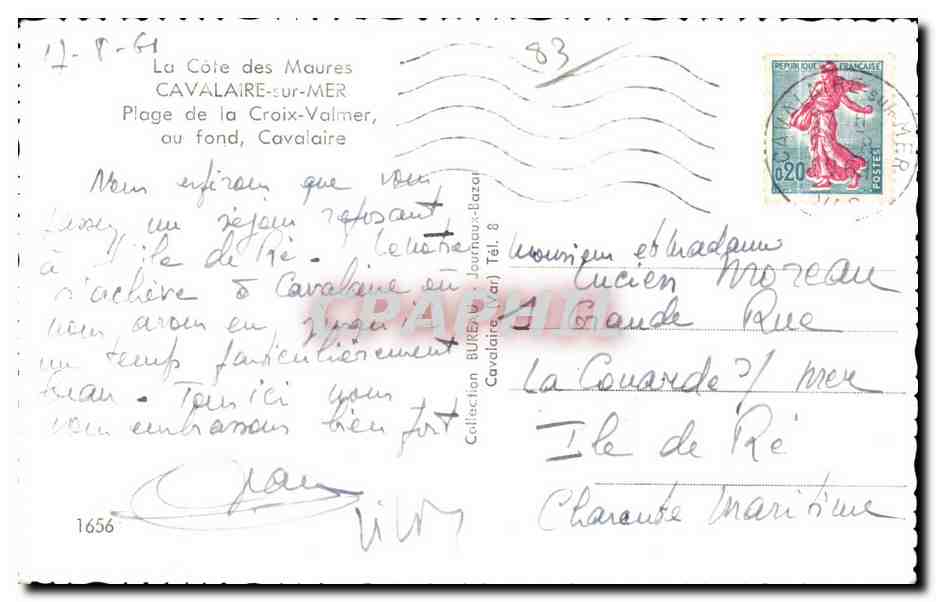 17-8-61
La Côte des Maures
CAVALAIRE-sur-MER
Plage de la Croix-Valmer,
au fond, Cavalaire
83
REPUBLIQUE FRANÇAISE
0,20
POSTES
CAVALAIRE-SUR-MER
VAR
Nous espérons que vous
passez un séjour reposant
à l'île de Ré. Le nôtre
s'achève à Cavalaire où
nous avons eu, jusqu'ici
un temps particulièrement
beau. Tous ici nous
vous embrassons bien fort
Jean
1656
Collection BUREAU - Journaux-Bazar
Cavalaire (Var) Tél. 8
CPARHU
Monsieur et Madame
Lucien Moreau
Grande Rue
La Couarde s/ mer
Ile de Ré
Charente Maritime